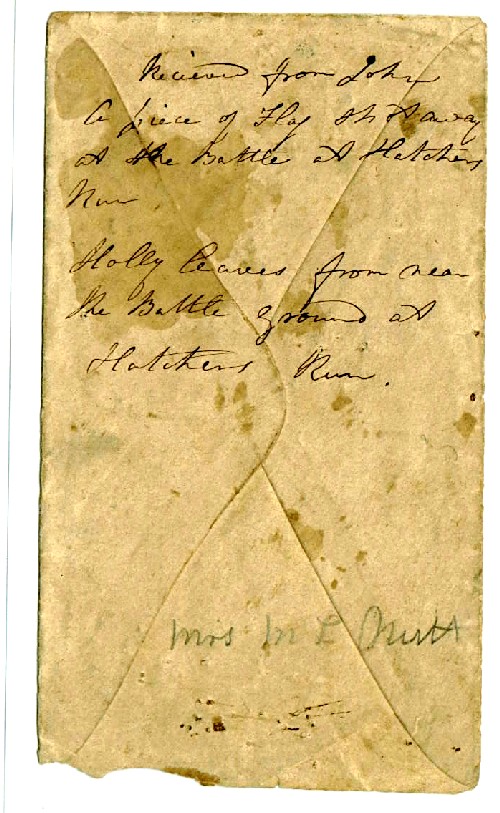 Recieved from John
A piece of Flag shot away
at the Battle at Hatchers
Run
Holly leaves from near
the Battle ground at
Hatchers Run.
Mrs M L